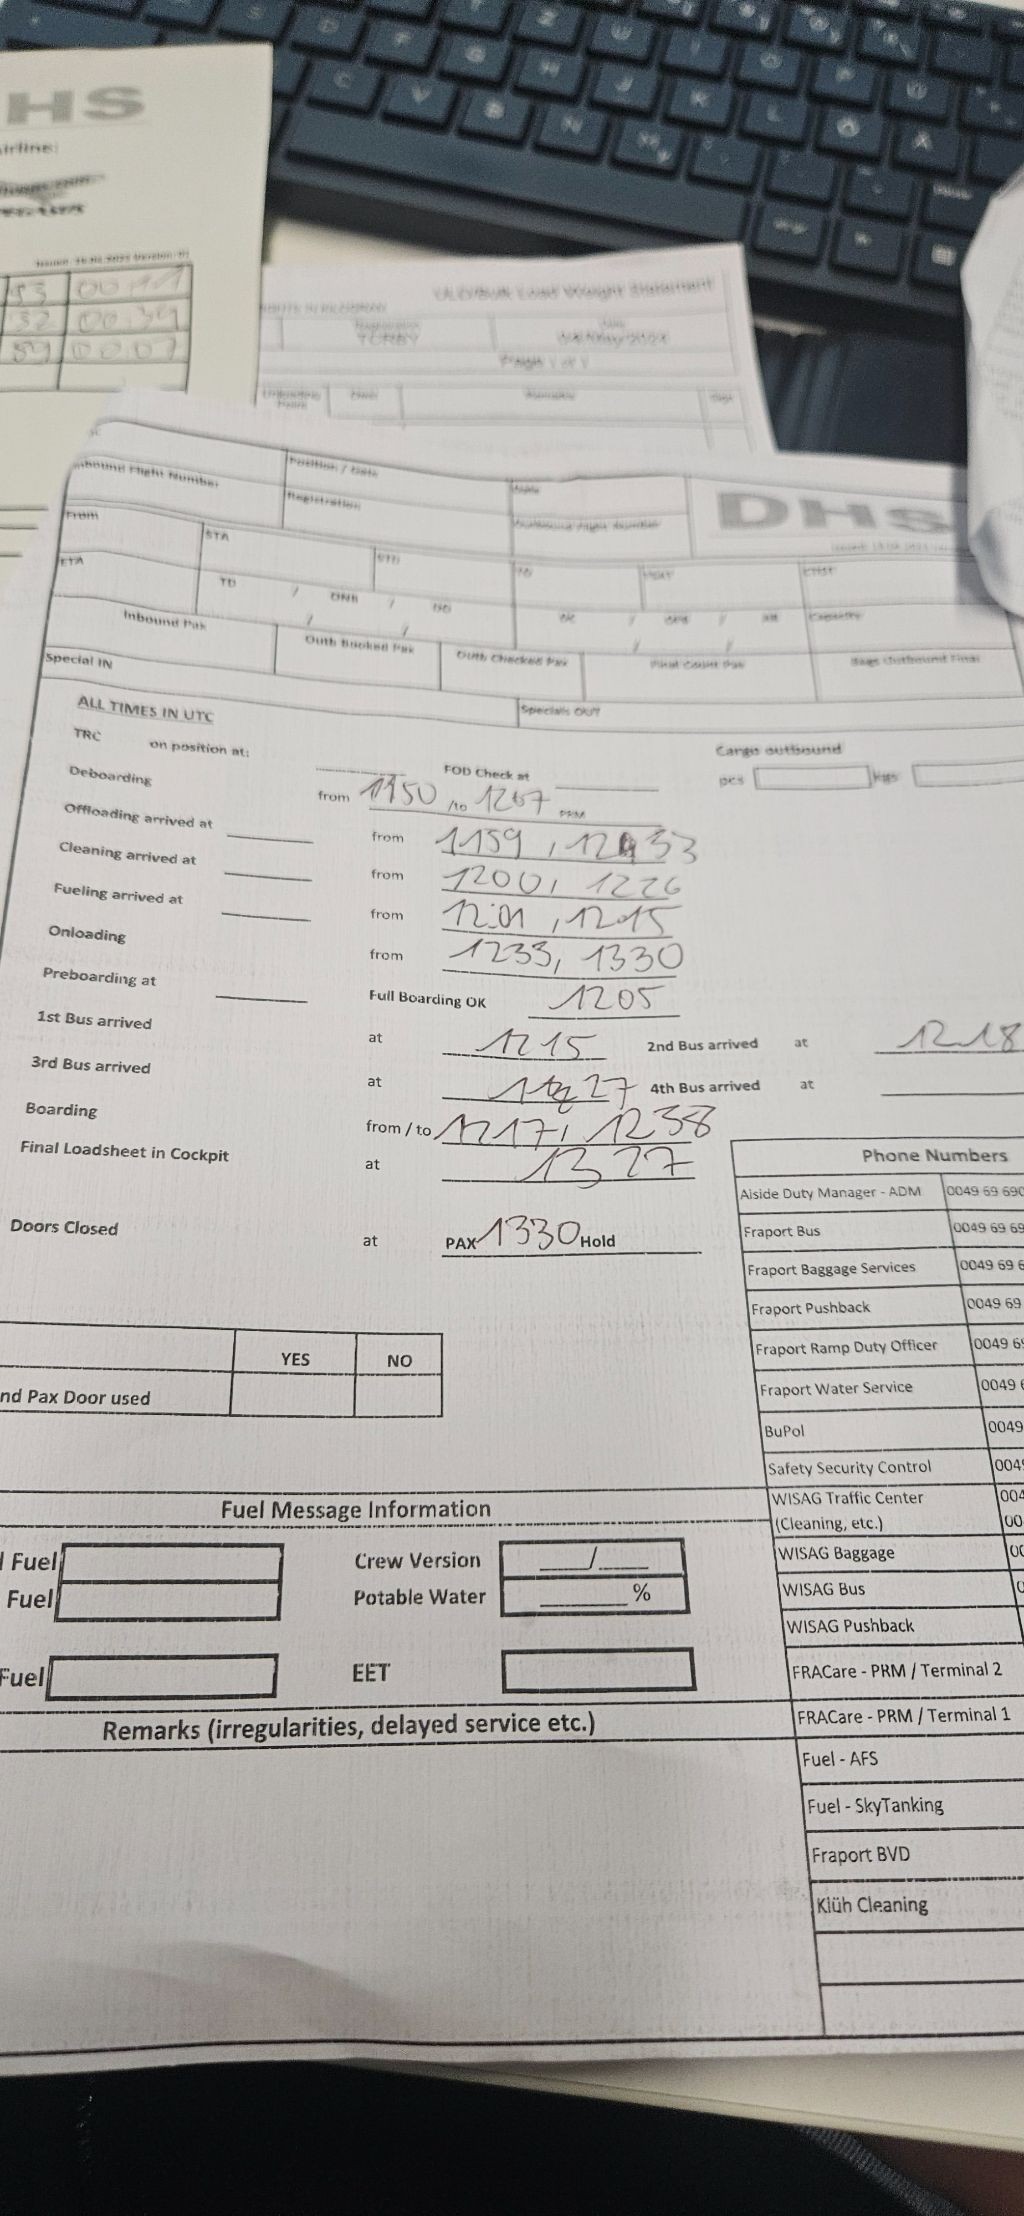 HS
Airline:
00:11
00:34
00:07
ULD/Bulk Load Weight Statement
Registration
TCRBY
Page 1 of 1
DHS
Inbound Flight Number
Position / Gate
Registration
Outbound Flight Number
From
STA
STD
TO
ETA
TD
/ ONB / BD
Inbound Pax
Outb Booked Pax
Outb Checked Pax
Final Count Pax
Bags Outbound Final
Special IN
Specials OUT
ALL TIMES IN UTC
TRC on position at:
FOD Check at
Cargo outbound
pcs kgs
Deboarding from 1150 /to 1207 PRM
Offloading arrived at from 1159, 1233
Cleaning arrived at from 1200, 1226
Fueling arrived at from 12:01, 1215
Onloading from 1233, 1330
Preboarding at Full Boarding OK 1205
1st Bus arrived at 1215 2nd Bus arrived at 1218
3rd Bus arrived at 1227 4th Bus arrived at
Boarding from / to 1217, 1238
Final Loadsheet in Cockpit at 1327
Doors Closed at PAX 1330 Hold
YES NO
nd Pax Door used
Phone Numbers
Aiside Duty Manager - ADM 0049 69 690
Fraport Bus 0049 69 69
Fraport Baggage Services 0049 69 6
Fraport Pushback 0049 69
Fraport Ramp Duty Officer 0049 69
Fraport Water Service 0049 6
BuPol 0049
Safety Security Control 004
WISAG Traffic Center 004
(Cleaning, etc.) 00
WISAG Baggage
WISAG Bus
WISAG Pushback
FRACare - PRM / Terminal 2
FRACare - PRM / Terminal 1
Fuel - AFS
Fuel - SkyTanking
Fraport BVD
Klüh Cleaning
Fuel Message Information
Fuel Crew Version /
Fuel Potable Water %
Fuel EET
Remarks (irregularities, delayed service etc.)